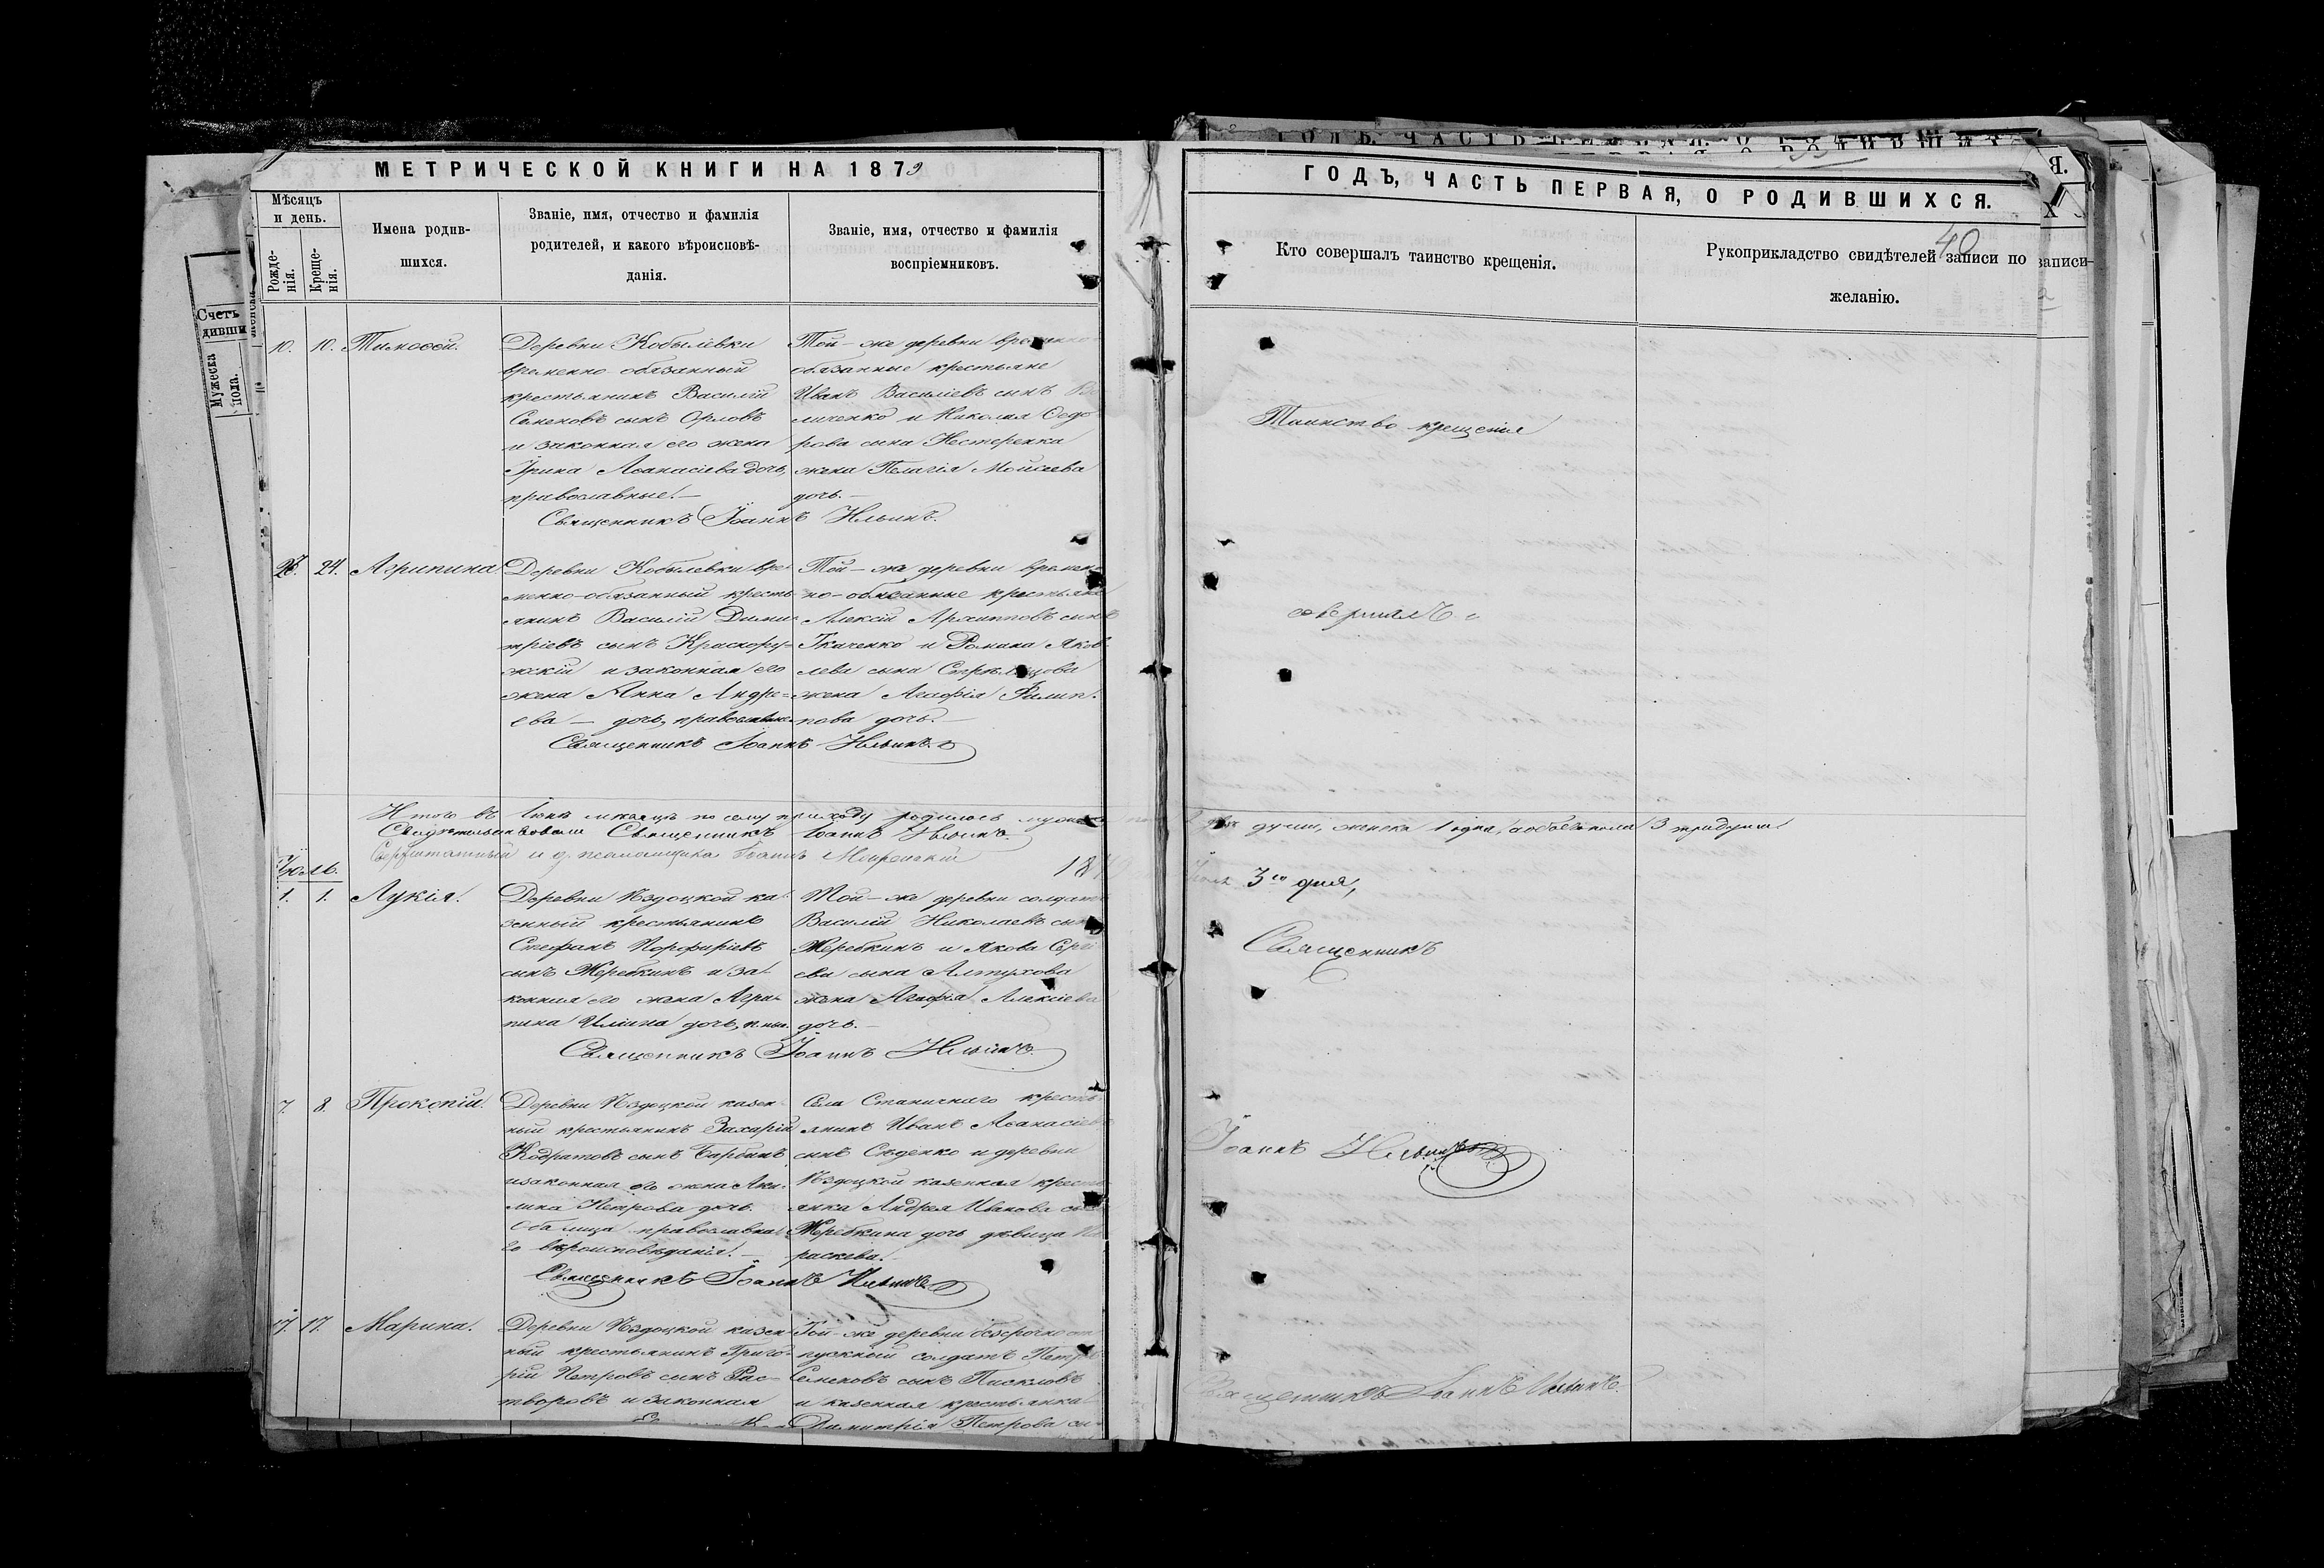 МЕТРИЧЕСКОЙ КНИГИ НА 1879
Мѣсяцъ и день.
Рожденія.
Крещенія.
Имена родившихся.
Званіе, имя, отчество и фамилія
родителей, и какого вѣроисповѣ-
данія.
Званіе, имя, отчество и фамилія
воспріемниковъ.
Счетъ
дивши
Мужеска пола.
10. 10. Тимоѳей.
Деревни Кобылевки
временно обязанный
крестьянинъ Василій
Семеновъ сынъ Орловъ
и законная его жена
Ірина Аѳанасіева дочь,
православные.
Той-же деревни временно
обязанные крестьяне
Иванъ Василіевъ сынъ
личенко и Николая Ѳедо
рова сына Нестеренка
жена Пелагія Моисеева
дочь.
Священникъ Іоаннъ Ильинъ.
24. Агрипина
Деревни Кобылевки вре-
менно-обязанный кресть-
янинъ Василій Дими-
тріевъ сынъ Краснору-
жскій и законная его
жена Анна Андре-
ева — дочь, православные
Той-же деревни времен
но-обязанные крестьяне
Алексій Архиповъ сынъ
Ткаченко и Романа Яков-
лева сына
жена Агафія Филип-
пова дочь.
Священникъ Іоаннъ Ильинъ.
Итого въ Іюнѣ мѣсяцѣ по сему приходу родилось мужеска
Свидѣтельствовали Священникъ Іоаннъ Ильинъ.
и д. псаломщика Іоаннъ
Іюль.
1. 1. Лукія.
Деревни Нздоцкой ка-
зенный крестьянинъ
Стефанъ Порфиріевъ
сынъ Жеребкинъ и за-
конная его жена Агри-
пина Иліина дочь,
Той-же деревни солдатъ
Василій Николаевъ сынъ
Жеребкинъ и Якова Сергі
ева сына Алтухова
жена Агафія Алексіева
дочь.
Священникъ Іоаннъ Ильинъ.
7. 8. Прокопій.
Деревни казен-
ный крестьянинъ Захарій
Кодратовъ сынъ
и законная его жена Аки-
лина Петрова дочь.
Оба лица православна
го вѣроисповѣданія.
Села Станичнаго кресть
янинъ Иванъ Аѳанасіевъ
сынъ Сѣденко и деревни
казенная кресть
янка Андрея Иванова сына
Жеребкина дочь дѣвица Па
раскева.
Священникъ Іоаннъ Ильинъ
17. 17. Марина.
Деревни казен-
ный крестьянинъ Григо-
рій Петровъ сынъ Рас-
творовъ и законная
Той-же деревни безсрочно от
пускный солдатъ Петръ
Семеновъ сынъ Пискловъ
и казенная крестьянка
Димитрія Петрова сы
ГОДЪ, ЧАСТЬ ПЕРВАЯ, О РОДИВШИХСЯ.
40
Кто совершалъ таинство крещенія.
Рукоприкладство свидѣтелей записи по
желанію.
записи
Таинство крещенія
совершалъ
души, женска 1 одна, а обоего пола 3 три души
3го дня,
Священникъ
Іоаннъ Ильинъ
Священникъ Іоаннъ Ильинъ.